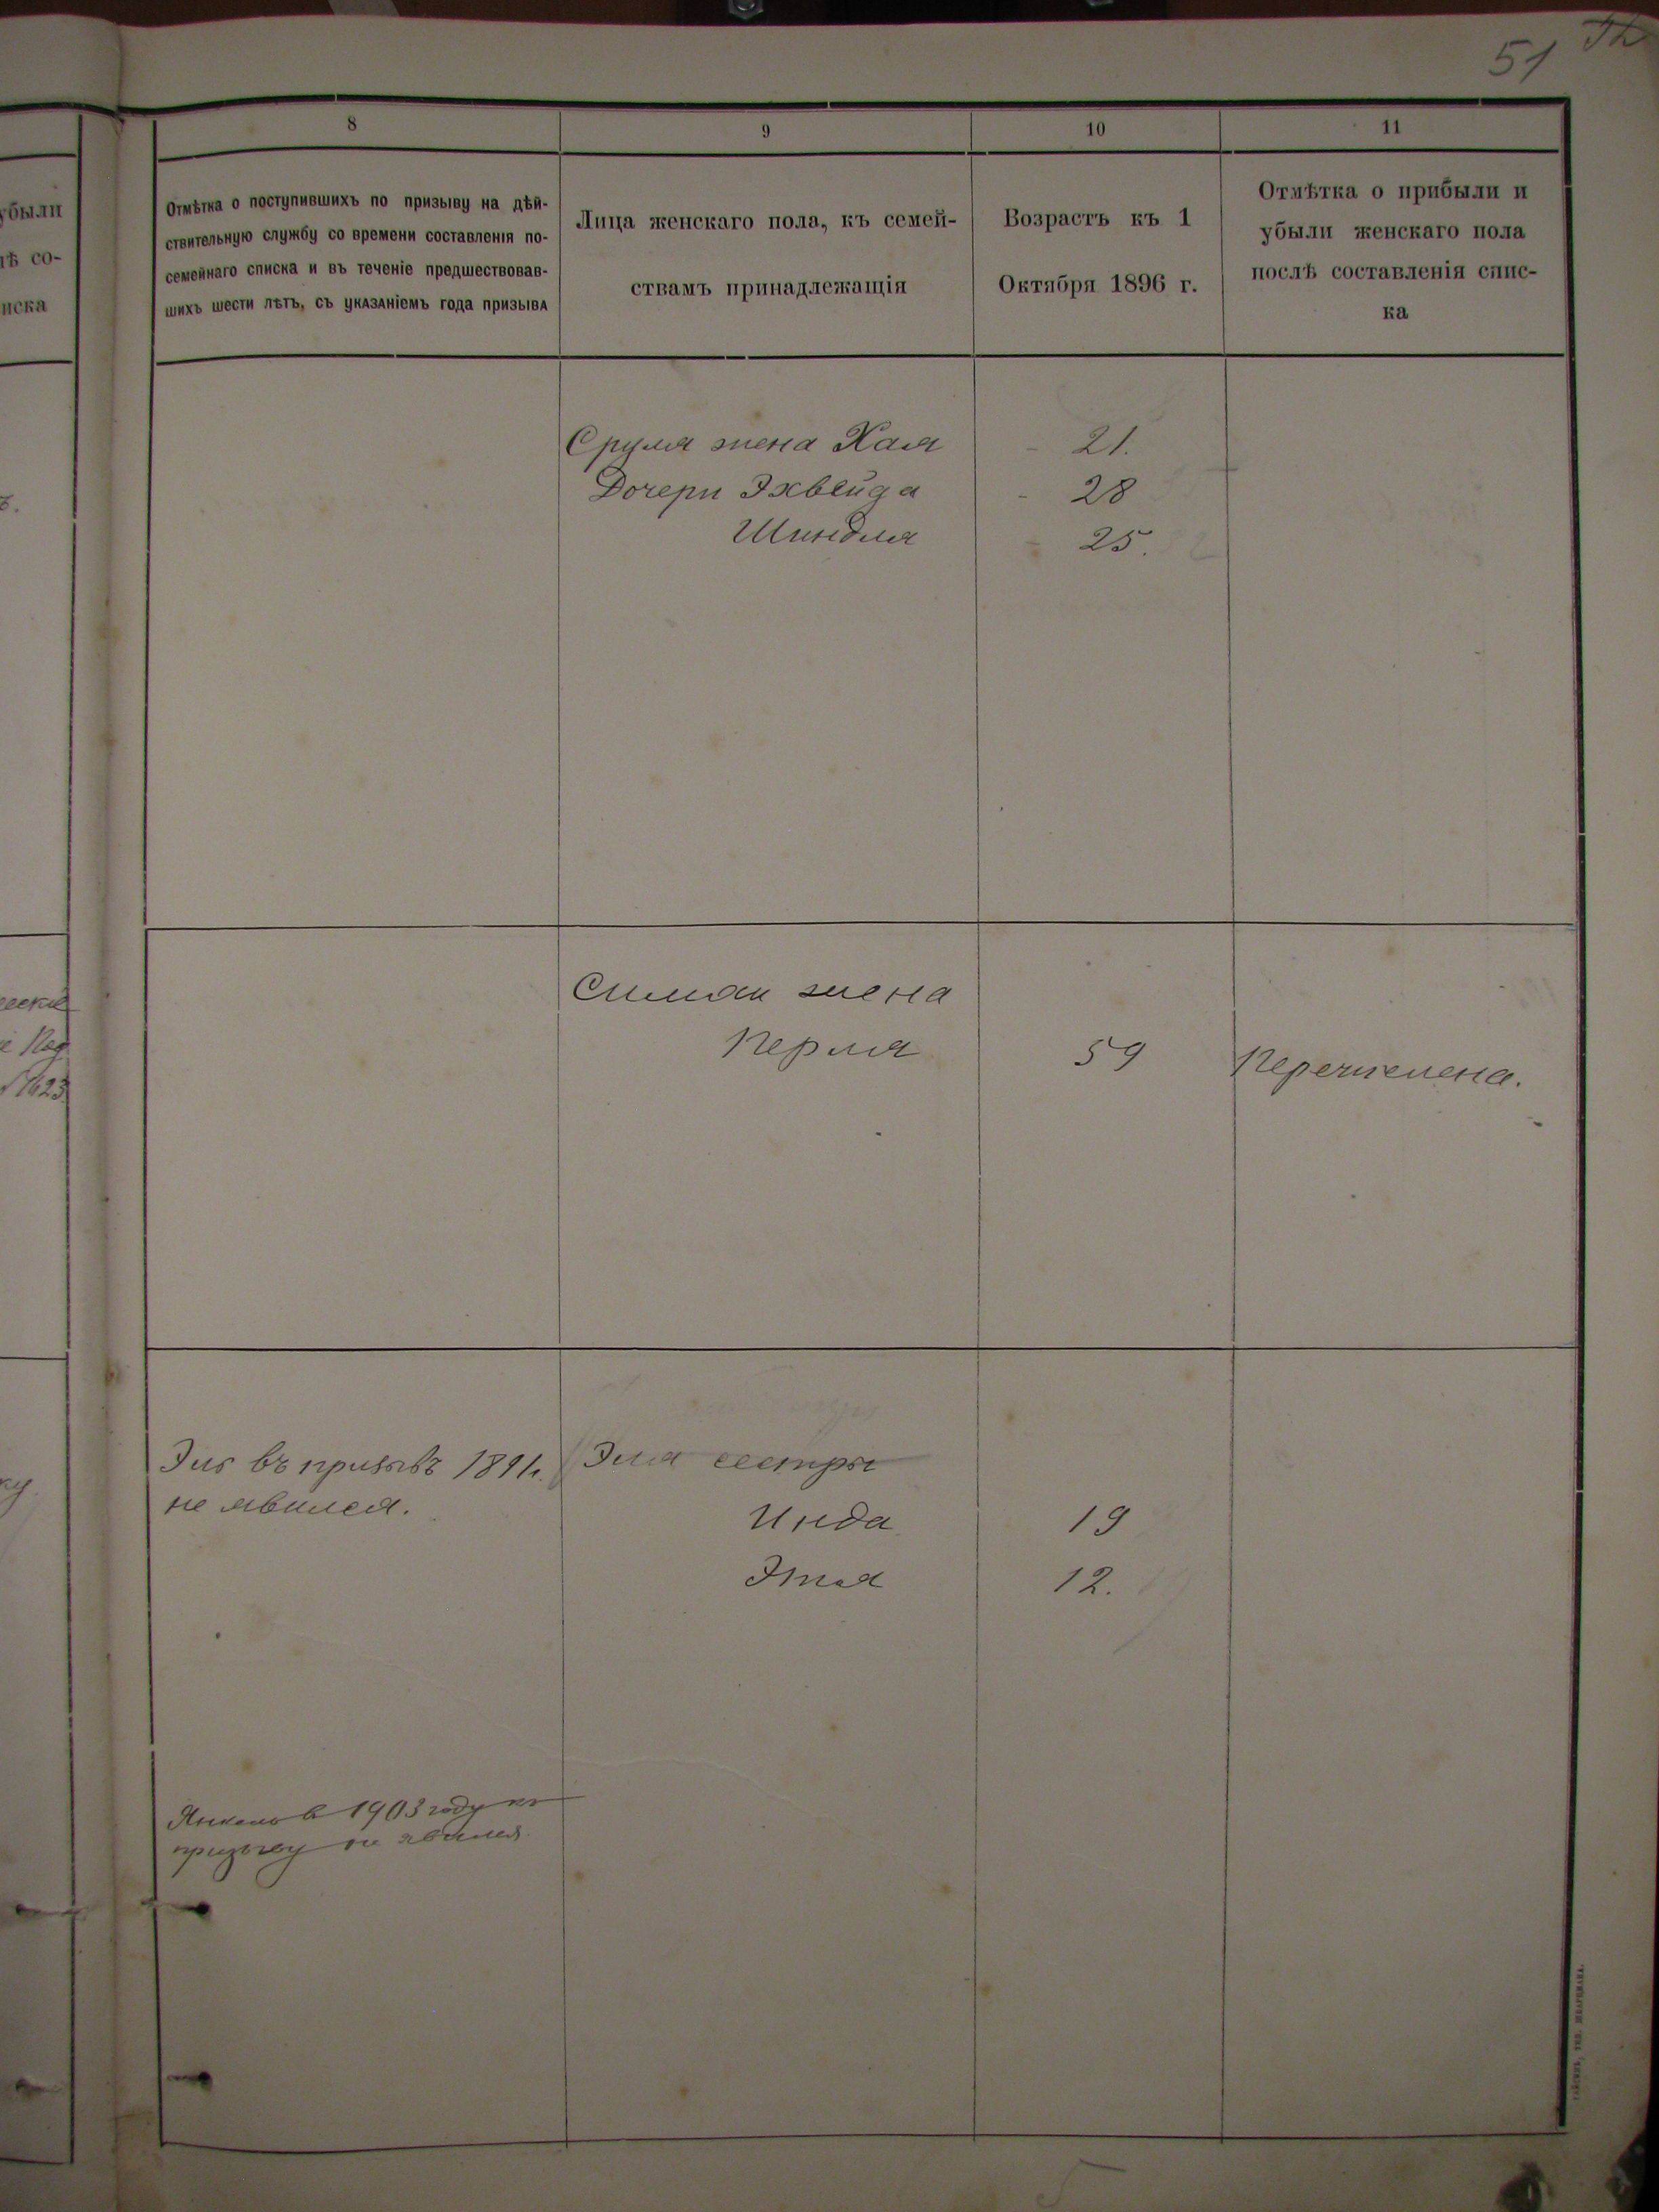 51
убыли
лѣ со-
иска
8
9
10
11
Отмѣтка о поступившихъ по призыву на дѣй-
ствительную службу со времени составленія по-
семейнаго списка и въ теченіе предшествовав-
шихъ шести лѣтъ, съ указаніемъ года призыва
Лица женскаго пола, къ семей-
ствамъ принадлежащія
Возрастъ къ 1
Октября 1896 г.
Отмѣтка о прибыли и
убыли женскаго пола
послѣ составленія спис-
ка
Сруля жена Хая 21.
Дочери Эхвейда 28
Шиндля 25.
Симхи жена
Перля 59 Перечислена.
Эль въ призывъ 1891 г.
не явился.
Эля сестры
Инда 19
Этля 12.
Янкель в 1903 году къ
призыву не явился
Гайсинъ, тип. Шварцмана.